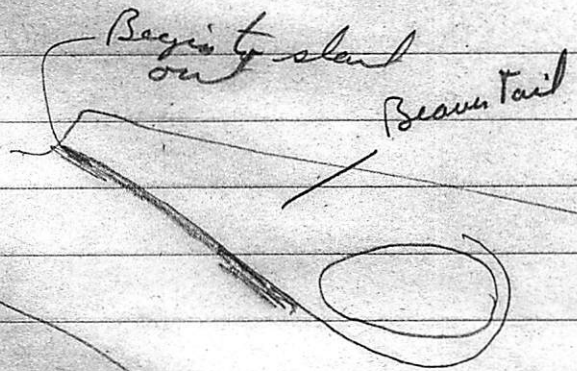 Begin to slant
out
Beaver Tail